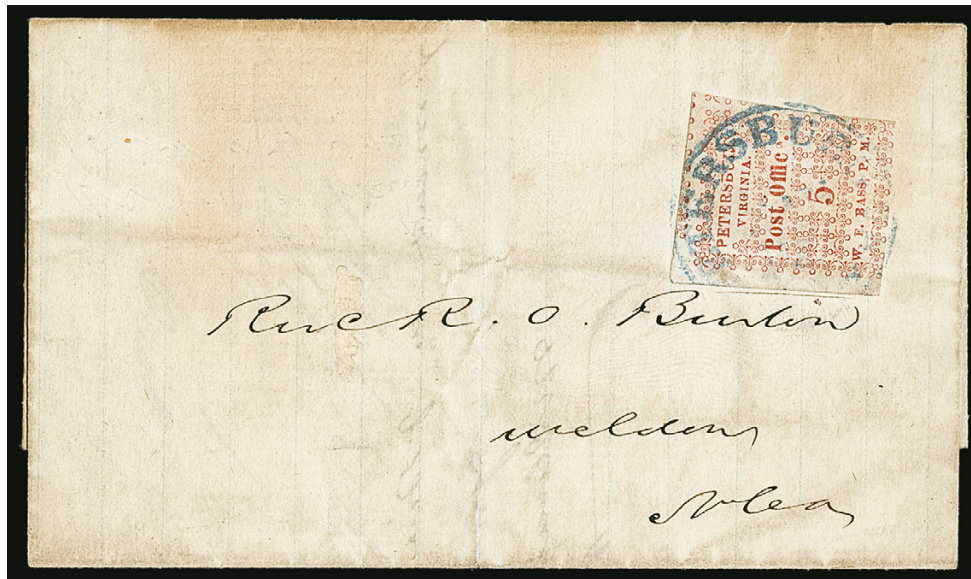 PETERSBU
PETERSBU
VIRGINIA.
Post Offic
5
W. E. BASS, P. M.
Revd R. O. Burton
Weldon
N Ca